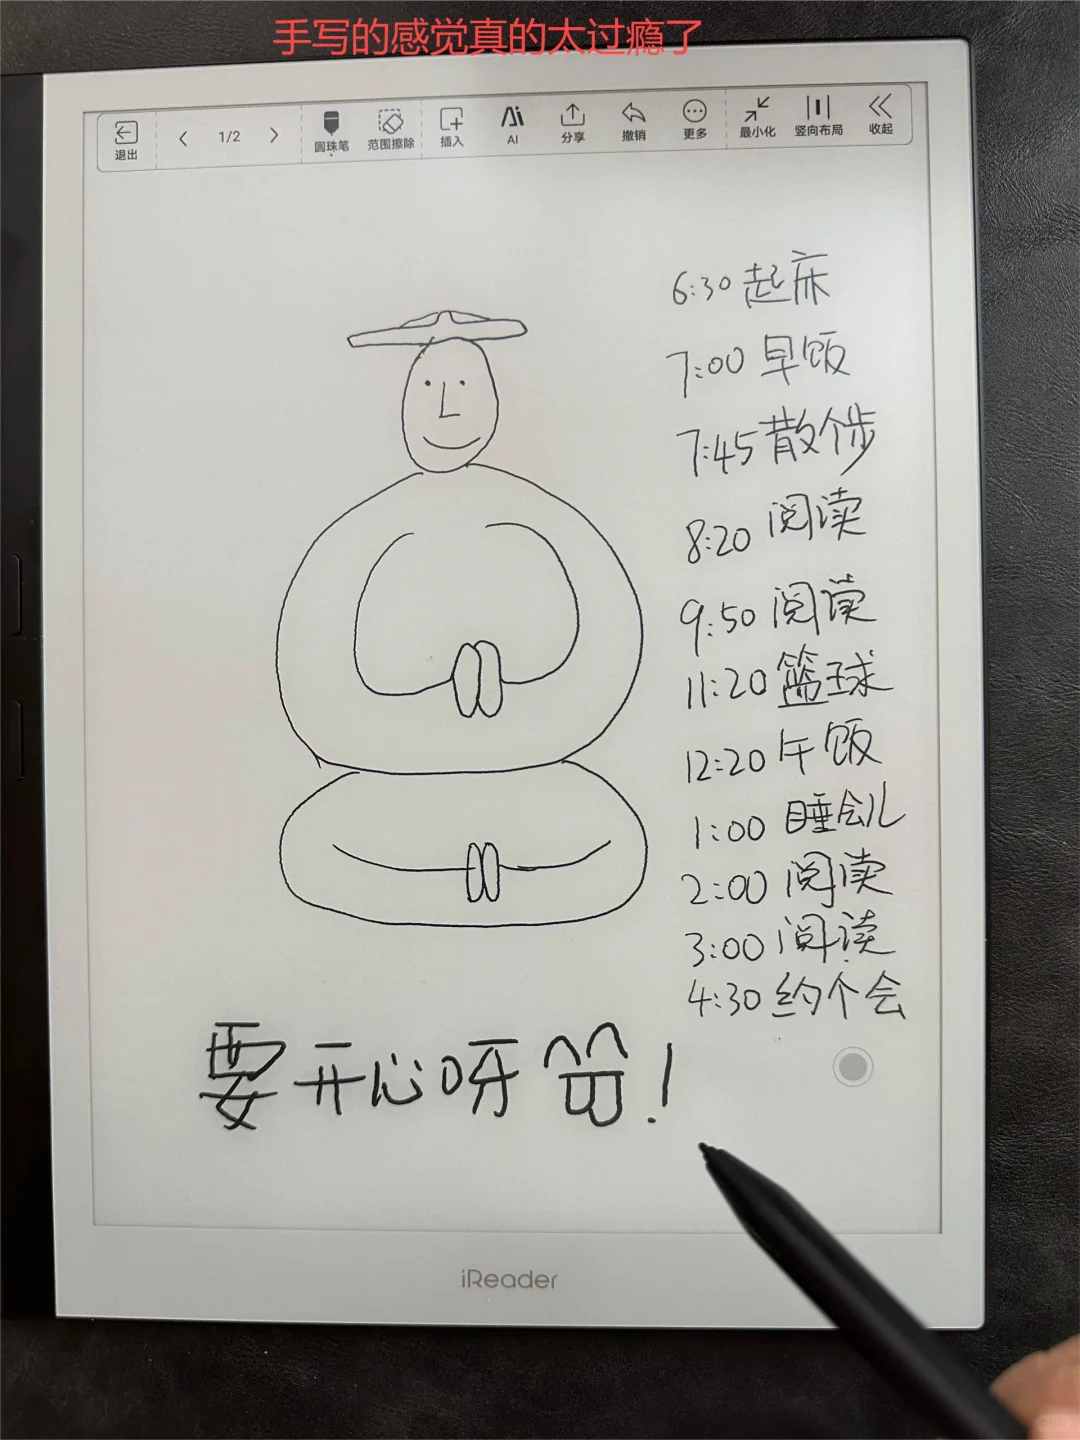 手写的感觉真的太过瘾了
退出
1/2
圆珠笔
范围擦除
插入
AI
分享
撤销
更多
最小化
竖向布局
收起
6:30 起床
7:00 早饭
7:45 散个步
8:20 阅读
9:50 阅读
11:20 篮球
12:20 午饭
1:00 睡会儿
2:00 阅读
3:00 阅读
4:30 约个会
要开心呀!
iReader